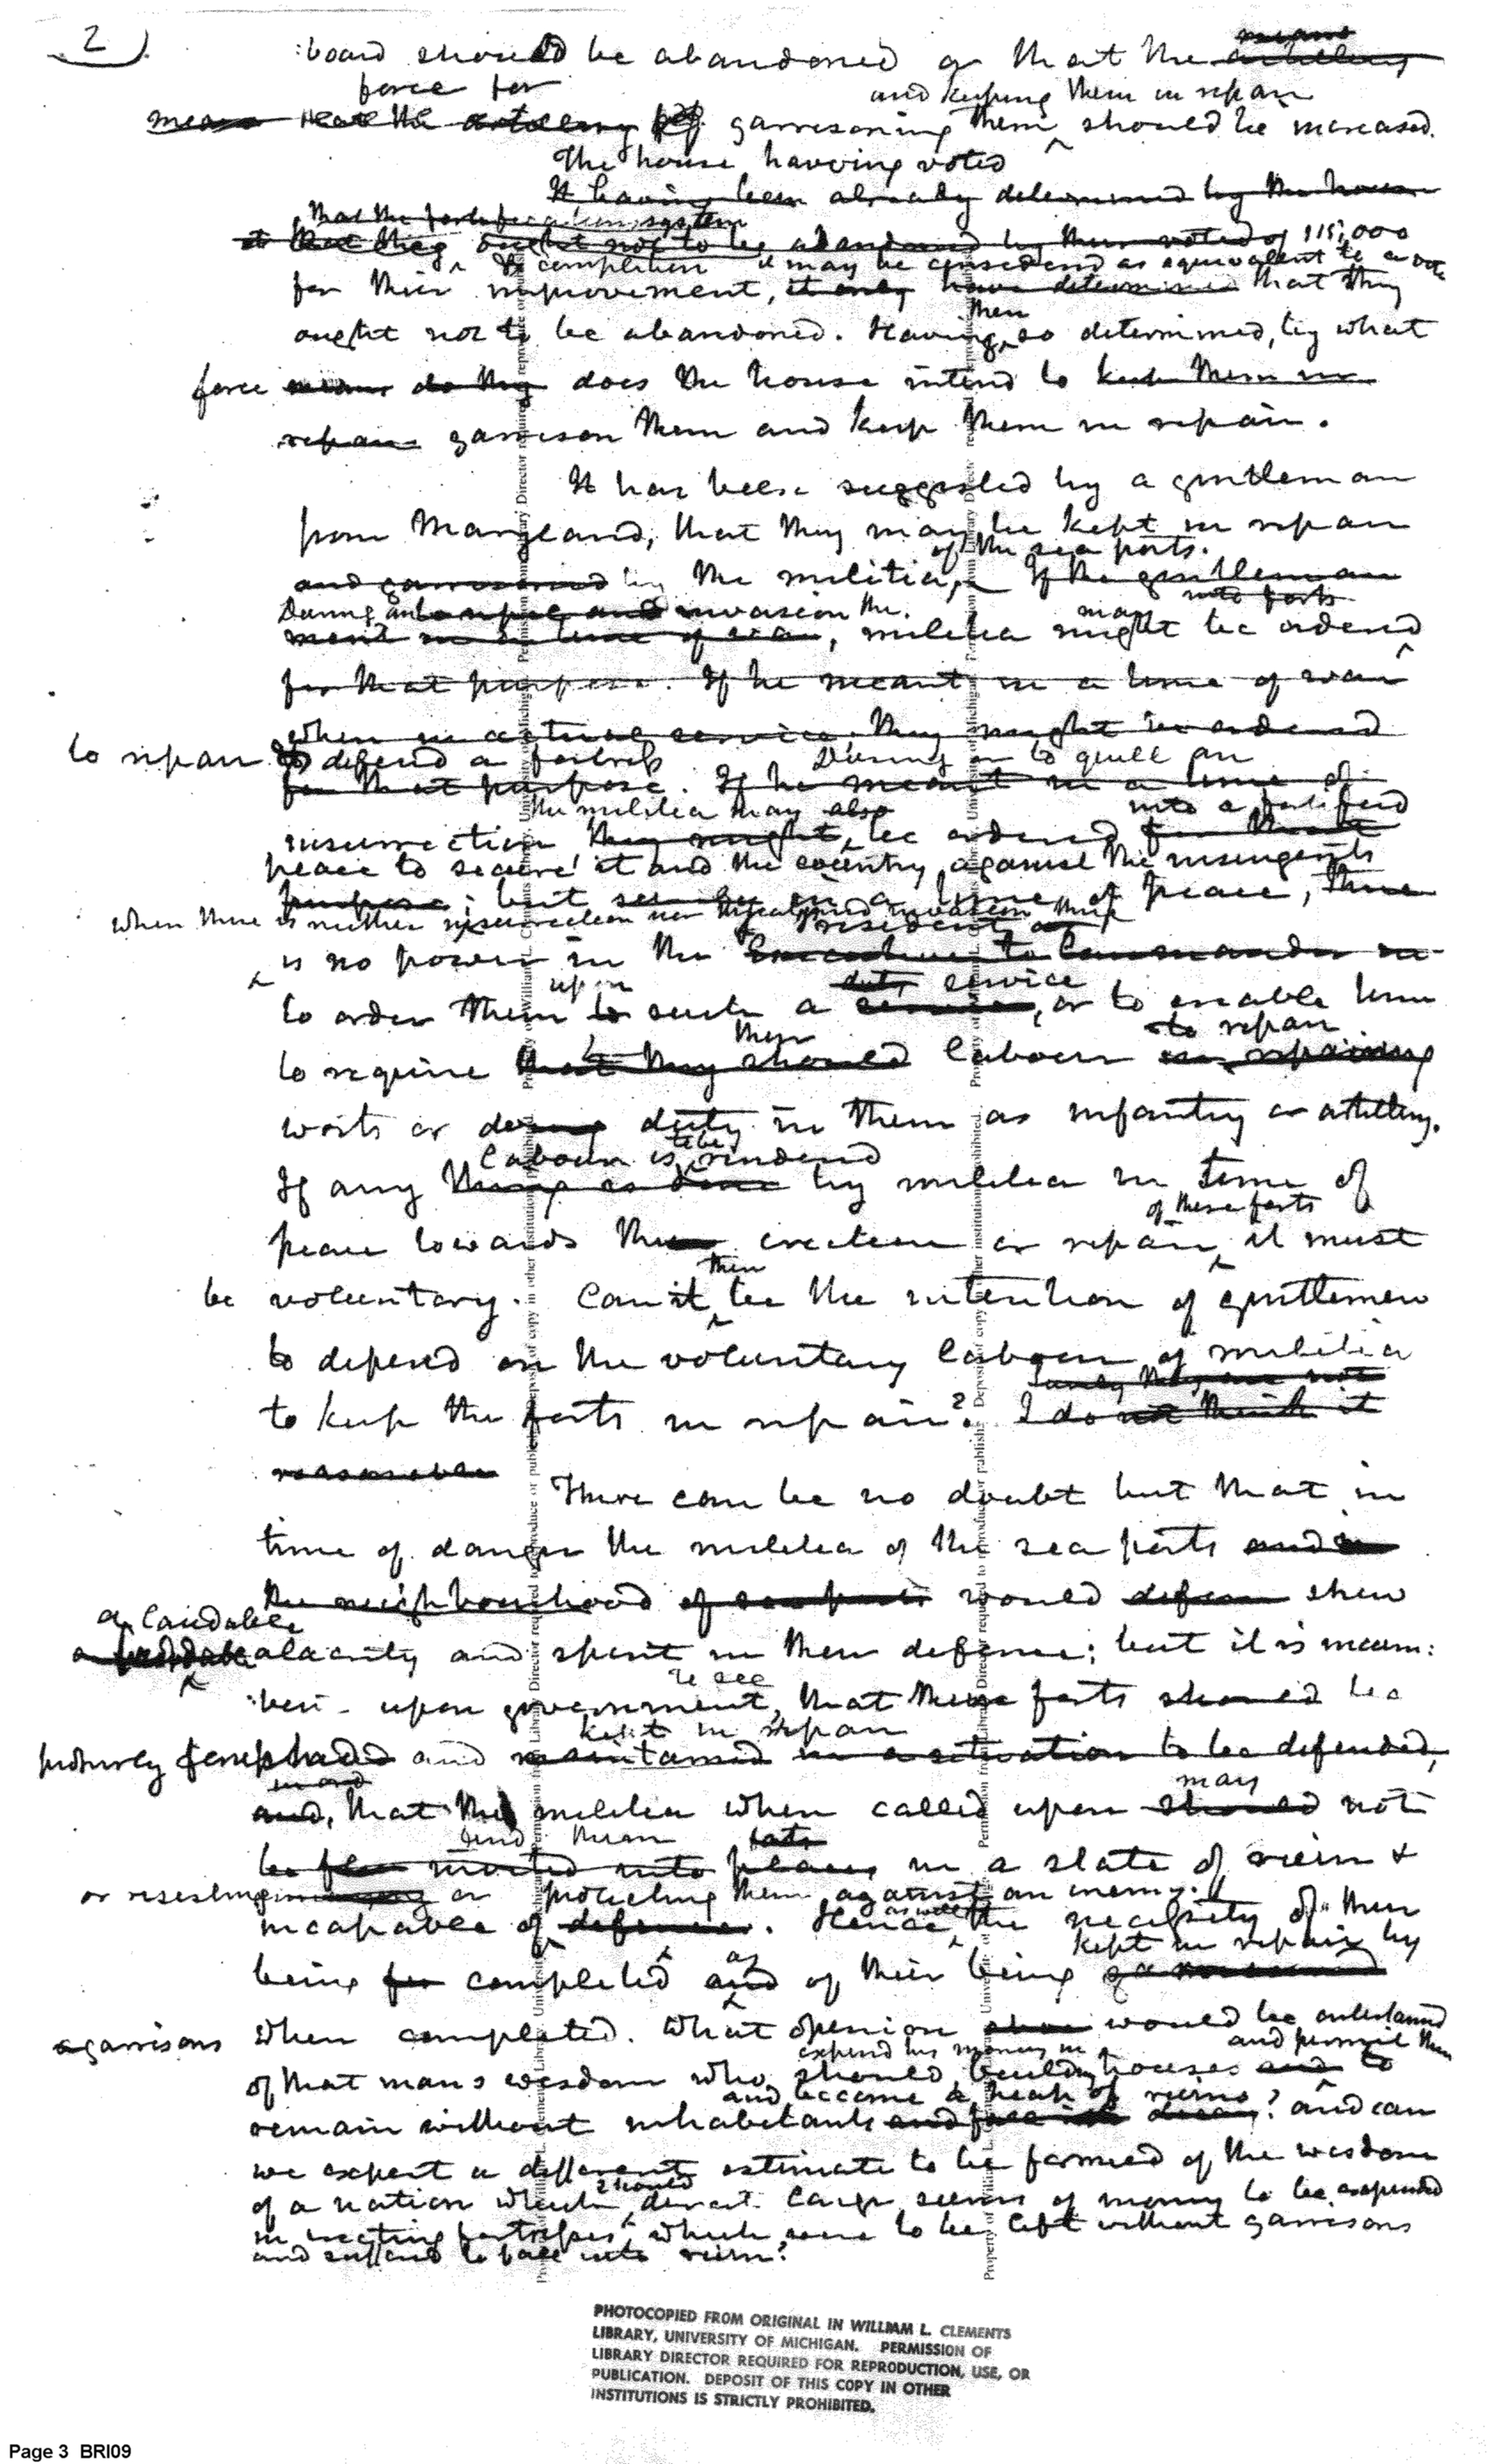 2)
:board should be abandoned or that the
means
force for
and keeping them in repair
garrisoning them should be increased.
The house having voted
It having been already determined by the house
that the fortification system
ought not to be abandoned by them voted of 115,000
completion it may be considered as equivalent to a vote
for their improvement, it only have determined that they
then
ought not to be abandoned. Having so determined, by what
force means do they does the house intend to keep them in
repair garrison them and keep them in repair.
It has been suggested by a gentleman
from Maryland, that they may be kept in repair
of the sea ports.
and garrisoned by the militia, If the gentleman
into forts
During an invasion the
may
meant in a time of war, militia might be ordered
for that purpose. If he meant in a time of war
when in actual service they might be ordered
to repair or defend a fortress During or to quell an
for that purpose. If he meant in a time of
the militia may also into a fortified
insurrection they might, be ordered for that
place to secure it and the country against the insurgents
purpose; but in a time of peace, there
when there is neither insurrection nor threatened invasion there
President
is no power in the Executive to Commander in
upon
duty service
to order them to such a service, or to enable him
them
to repair
to require that they should labour in repairing
works or doing duty in them as infantry or artillery.
labour is to be rendered
If any thing is done by militia in time of
of these forts
peace towards the erection or repair, it must
then
be voluntary. Can it be the intention of gentlemen
to depend on the voluntary labour of militia
surely they are not
to keep the forts in repair? I do not think it
reasonable
There can be no doubt but that in
time of danger the militia of the sea ports and in
the neighbourhood of sea ports would shew
a laudable
a laudable alacrity and spirit in their defence; but it is incum:
to see
:bent upon government, that these forts should be
kept in repair
and maintained in a situation to be defended,
may
and, that the militia when called upon should not
find them forts
be invited into places in a state of ruin &
or resisting or protecting them against an enemy.
as well
incapable of defence. Hence the necessity of their
kept in repair by
as
being completed and of their being garrisoned
garrisons when completed. What opinion would be entertained
expend his money in and permit them
of that mans wisdom who should building houses and to
and become a heap of ruins?
remain without inhabitants and fall into decay? and can
we expect a different estimate to be formed of the wisdom
should
of a nation which direct large sums of money to be expended
in erecting fortresses which were to be left without garrisons
and suffered to fall into ruin?
Property of William L. Clements Library, University of Michigan
PHOTOCOPIED FROM ORIGINAL IN WILLIAM L. CLEMENTS
LIBRARY, UNIVERSITY OF MICHIGAN. PERMISSION OF
LIBRARY DIRECTOR REQUIRED FOR REPRODUCTION, USE, OR
PUBLICATION. DEPOSIT OF THIS COPY IN OTHER
INSTITUTIONS IS STRICTLY PROHIBITED.
Page 3 BRI09